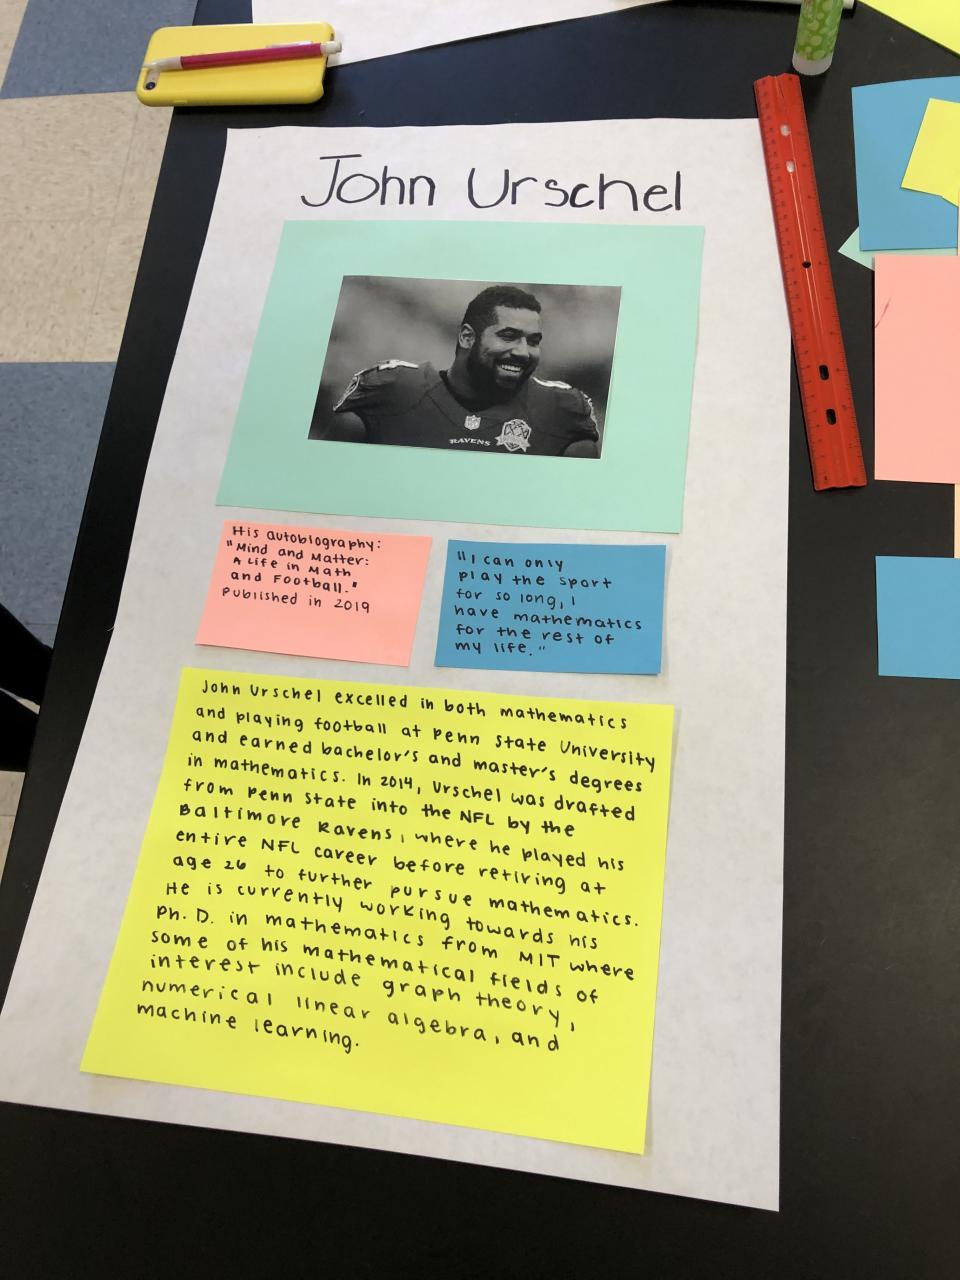 John Urschel
RAVENS
His autobiography:
"Mind and Matter:
A Life in Math
and Football."
published in 2019
"I can only
play the sport
for so long, I
have mathematics
for the rest of
my life."
John Urschel excelled in both mathematics
and playing football at Penn State University
and earned bachelor's and master's degrees
in mathematics. In 2014, Urschel was drafted
from Penn State into the NFL by the
Baltimore Ravens, where he played his
entire NFL career before retiring at
age 26 to further pursue mathematics.
He is currently working towards his
Ph. D. in mathematics from MIT where
some of his mathematical fields of
interest include graph theory,
numerical linear algebra, and
machine learning.